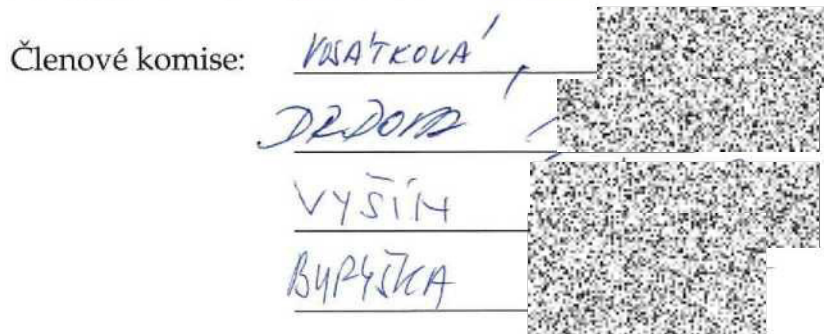 Členové komise: VOSÁTKOVÁ
DRDOVÁ
VYŠÍN
BURYŠKA